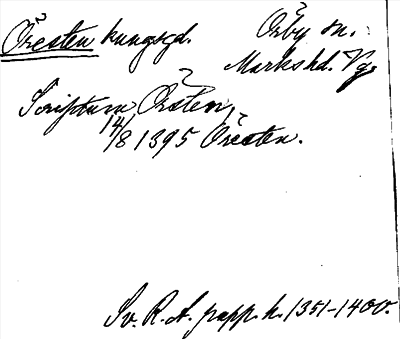 Öresten kungsgd. Örby sn.
Markshd. Vg.
Scriptum Örsten,
14/8 1395 Öresten.
Sv. R. A. papp. h. 1351-1400.